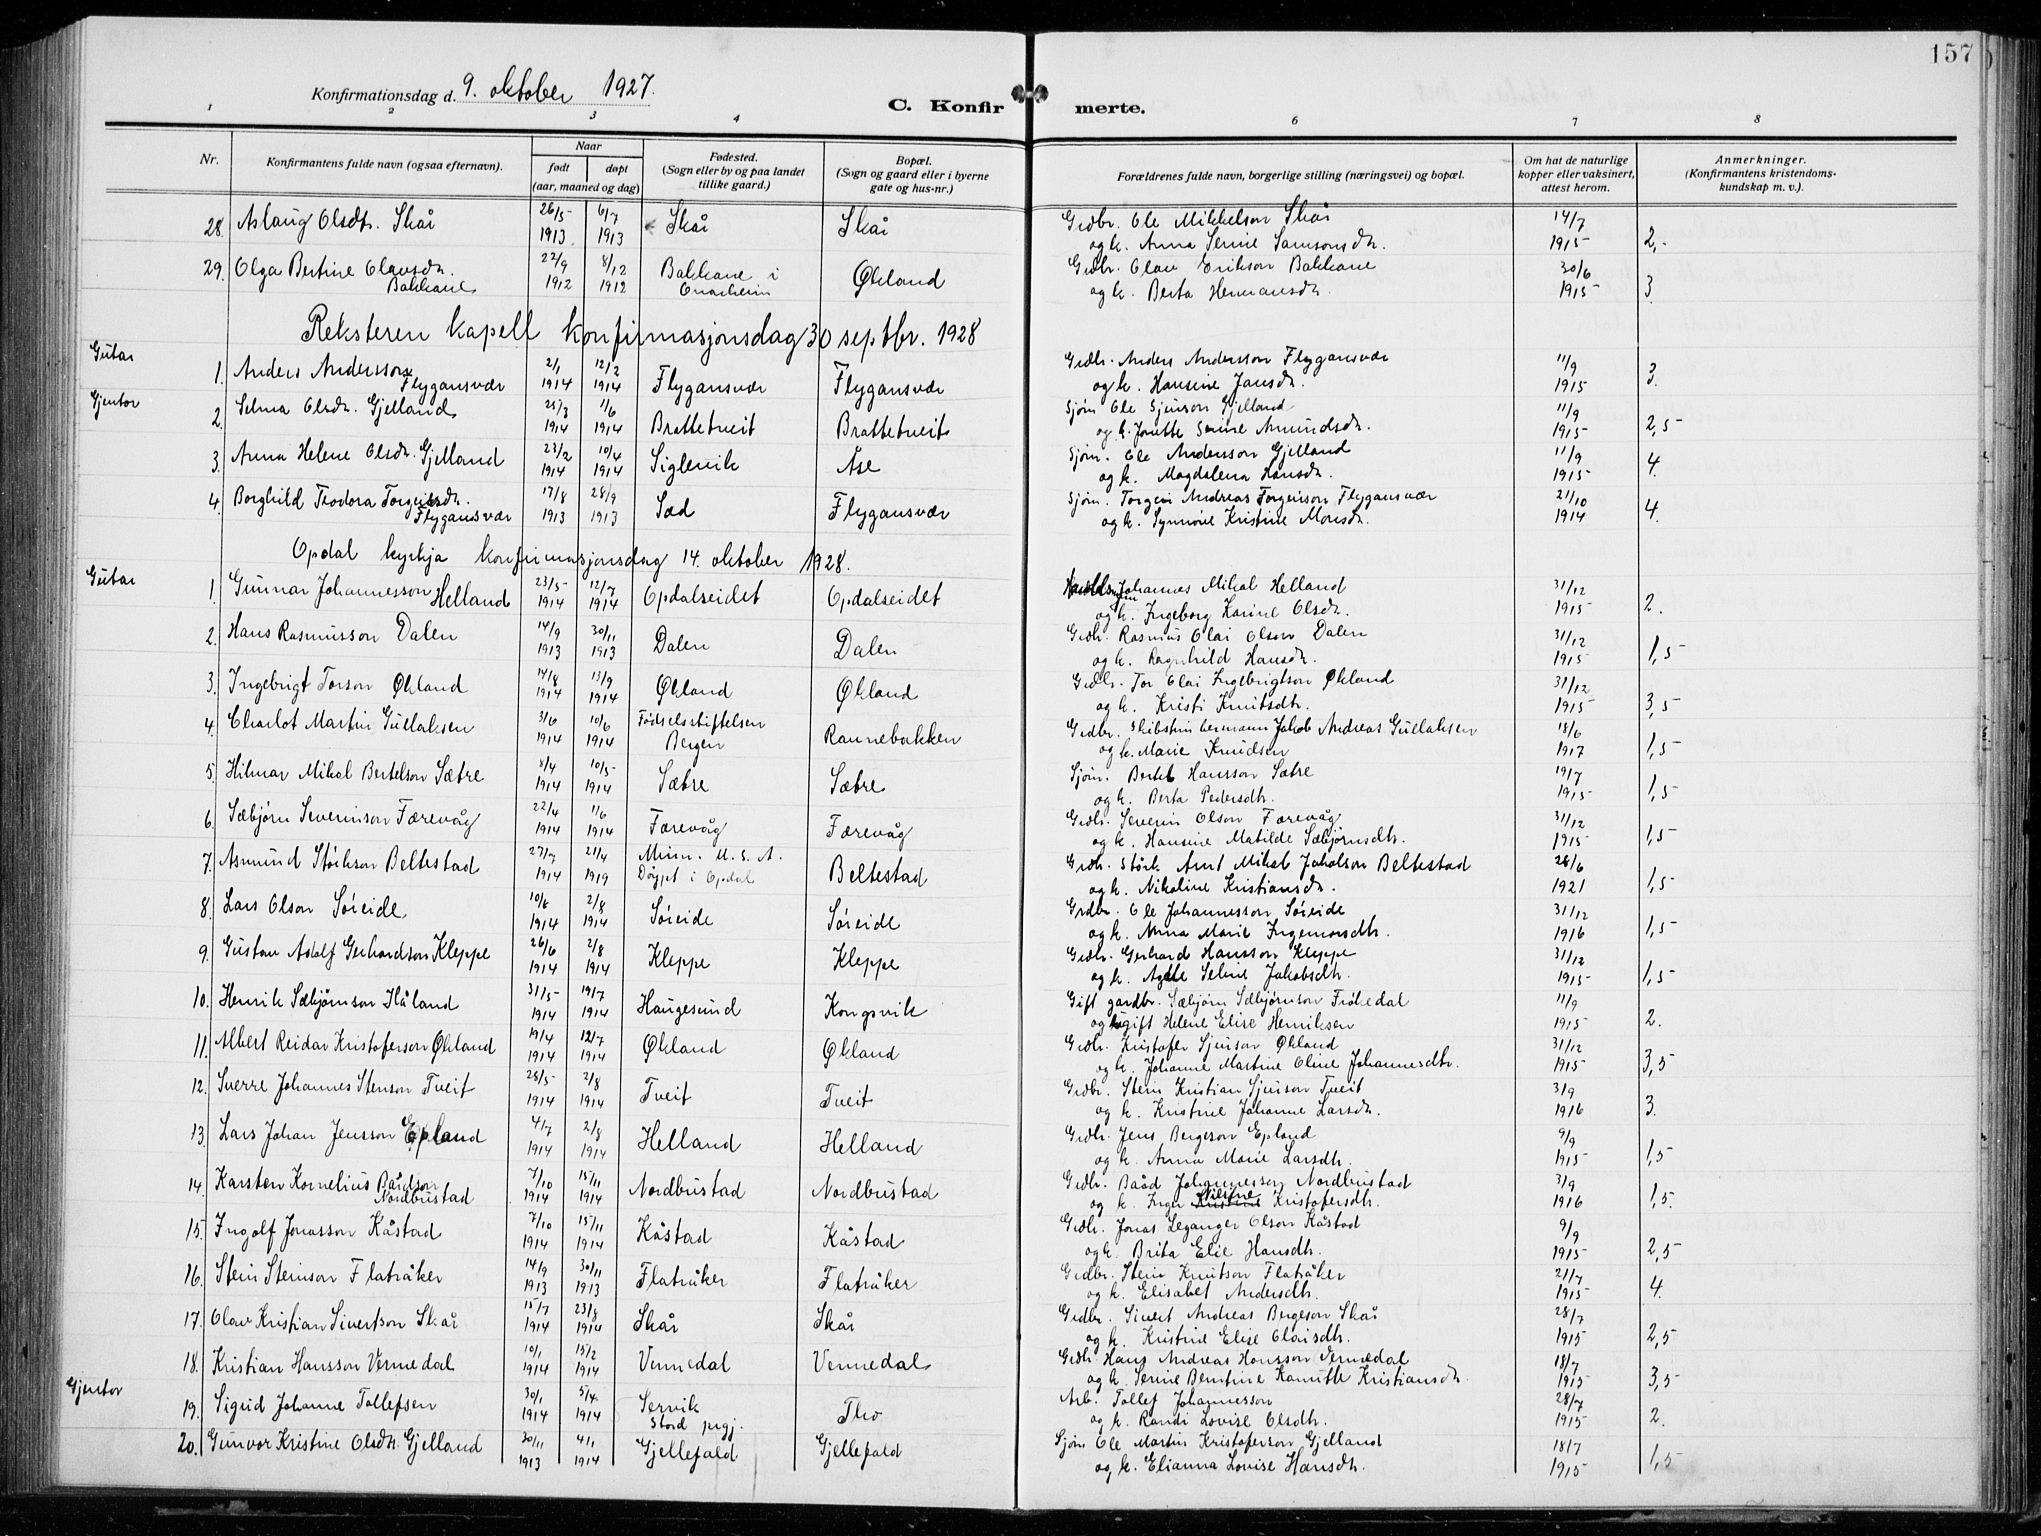 157
Konfirmationsdag d. 9. oktober 1927.
C. Konfirmerte.
1 2 3 4 6 7 8
Nr.
Konfirmantens fulde navn (ogsaa efternavn).
Naar
født døpt
(aar, maaned og dag)
Fødested.
(Sogn eller by og paa landet
tillike gaard.)
Bopæl.
(Sogn og gaard eller i byerne
gate og hus-nr.)
Forældrenes fulde navn, borgerlige stilling (næringsvei) og bopæl.
Om hat de naturlige
kopper eller vaksinert,
attest herom.
Anmerkninger.
(Konfirmantens kristendoms-
kundskap m. v.).
28. Aslaug Olsdtr. Skår 26/5 1913 6/7 1913 Skår Skår Grdbr. Ole Mikkelson Skår 14/7
og k. Anna Serine Samsonsdtr. 1915 2,-
29. Olga Bertine Olavsdtr. 22/9 8/12 Bakkane i Økland Grdbr. Olav Erikson Bakkane 30/6
Bakkane 1912 1912 og k. Berta Hermansdtr. 1915 3
Reksteren kapell konfirmasjonsdag 30 septbr. 1928
Gutar
1. Anders Andersson 2/1 12/2 Flygansvær Flygansvær Grdbr. Anders Andersson Flygansvær 11/9
Flygansvær 1914 1914 og k. Hansine Jansdtr. 1915 3.
Gjentor
2. Selma Olsdtr. Gjelland 25/3 1/6 Brattetveit Brattetveit Sjøm. Ole Sjurson Gjelland 11/9
1914 1914 og k. Jonette Serine Amundsdtr. 1915 2,5
3. Anna Helene Olsdtr. Gjelland 23/2 10/4 Siglevik Åse Sjøm. Ole Andersson Gjelland 11/9
1914 1914 og k. Magdalena Hansdtr. 1915 4.
4. Borghild Teodora Torgeirsdtr. 17/8 28/9 Sæd Flygansvær Sjøm. Torgeir Andreas Torgeirson Flygansvær 21/10
Flygansvær 1913 1913 og k. Synnøve Kristine Monsdtr. 1914 4.
Opdal kyrkja konfirmasjonsdag 14. oktober 1928.
Gutar
1. Gunnar Johannesson Helland 23/5 12/7 Opdalseidet Opdalseidet Johannes Mikal Helland 31/12
1914 1914 og k. Ingeborg Karine Olsdtr. 1915 2.
2. Hans Rasmusson Dalen 14/9 30/11 Dalen Dalen Grdbr. Rasmus Olai Olson Dalen 31/12
1913 1913 og k. Ragnhild Hansdtr. 1915 1,5
3. Ingebrigt Torson Økland 14/8 13/9 Økland Økland Grdbr. Tor Olai Ingebrigtson Økland 31/12
1914 1914 og k. Kristi Knutsdtr. 1915 3,5
4. Charlot Martin Gullaksen 3/6 10/6 Fødselsstiftelsen Rannebakken Grdbr. Skibstømermann Jakob Andreas Gullaksen 18/6
1914 1914 Bergen og k. Marie Knudsen 1917 1,5
5. Hilmar Mikal Bertelson Sætre 8/4 10/5 Sætre Sætre Sjøm. Bertel Hansson Sætre 19/7
1914 1914 og k. Berta Pedersdtr. 1915 1,5
6. Sæbjørn Severinson Færevåg 22/4 1/6 Færevåg Færevåg Grdbr. Severin Olson Færevåg 31/12
1914 1914 og k. Hansine Matilde Sæbjørnsdtr. 1915 1,5
7. Asmund Størkson Beltestad 27/7 21/4 Minn. U. S. A. Beltestad Grdbr. Størk Arnt Mikal Jakobson Beltestad 28/6
1914 1919 Døypt i Opdal og k. Nikoline Kristiansdtr. 1921 1,5
8. Lars Olson Søreide 10/6 2/8 Søreide Søreide Grdbr. Ole Johannesson Søreide 31/12
1914 1914 og k. Anna Marie Ingemorsdtr. 1916 1,5
9. Gustav Adolf Gerhardson Kleppe 26/6 2/8 Kleppe Kleppe Grdbr. Gerhard Hansson Kleppe 31/12
1914 1914 og k. Agate Seline Jakobsdtr. 1915 1,5
10. Henrik Sæbjørnson Håland 31/5 19/7 Haugesund Kongsvik Gift gardbr. Sæbjørn Sæbjørnson Frøkedal 11/9
1914 1914 og ugift Helene Elise Henriksen 1915 2.
11. Albert Reidar Kristoferson Økland 19/4 12/7 Økland Økland Grdbr. Kristofer Sjurson Økland 31/12
1914 1914 og k. Johanne Martine Oline Johannesdtr. 1915 3,5
12. Sverre Johannes Stenson Tveit 28/5 2/8 Tveit Tveit Grdbr. Stein Kristian Sjurson Tveit 3/9
1914 1914 og k. Kristine Johanne Larsdtr. 1916 3.
13. Lars Johan Jensson Epland 4/7 2/8 Helland Helland Grdbr. Jens Bergeson Epland 9/9
1914 1914 og k. Anna Marie Larsdtr. 1915 1,5
14. Karsten Kornelius Bårdson 7/10 15/11 Nordbustad Nordbustad Grdbr. Baard Johannesson Nordbustad 3/9
Nordbustad 1914 1914 og k. Inger Kristine Kristofersdtr. 1916 1,5.
15. Ingolf Jonasson Kåstad 7/10 15/11 Kåstad Kåstad Grdbr. Jonas Leganger Olson Kåstad 9/9
1914 1914 og k. Brita Elie Hansdtr. 1915 2,5
16. Stein Steinson Flatråker 14/9 30/11 Flatråker Flatråker Grdbr. Stein Knutson Flatråker 21/7
1913 1913 og k. Elisabet Andersdtr. 1915 4.
17. Olav Kristian Sivertson Skår 15/7 23/8 Skår Skår Grdbr. Sivert Andreas Bergeson Skår 28/7
1914 1914 og k. Kristine Elise Olaisdtr. 1915 2,5
18. Kristian Hansson Vernedal 10/1 15/2 Vernedal Vernedal Grdbr. Hans Andreas Hansson Vernedal 18/7
1914 1914 og k. Serine Berntine Kamitte Kristiansdtr. 1915 3,5
Gjentor
19. Sigrid Johanne Tollefsen 30/1 5/4 Servik Tho Arb. Tollef Johannesson 28/7
1914 1914 Stord prgj. og k. Randi Lovise Olsdtr. 1915 2.
20. Gunvor Kristine Olsdtr. Gjelland 30/11 4/1 Gjellefald Gjellefald Sjøm. Ole Martin Kristoferson Gjelland 18/7
1913 1914 og k. Elianna Lovise Hansdtr. 1915 1,5